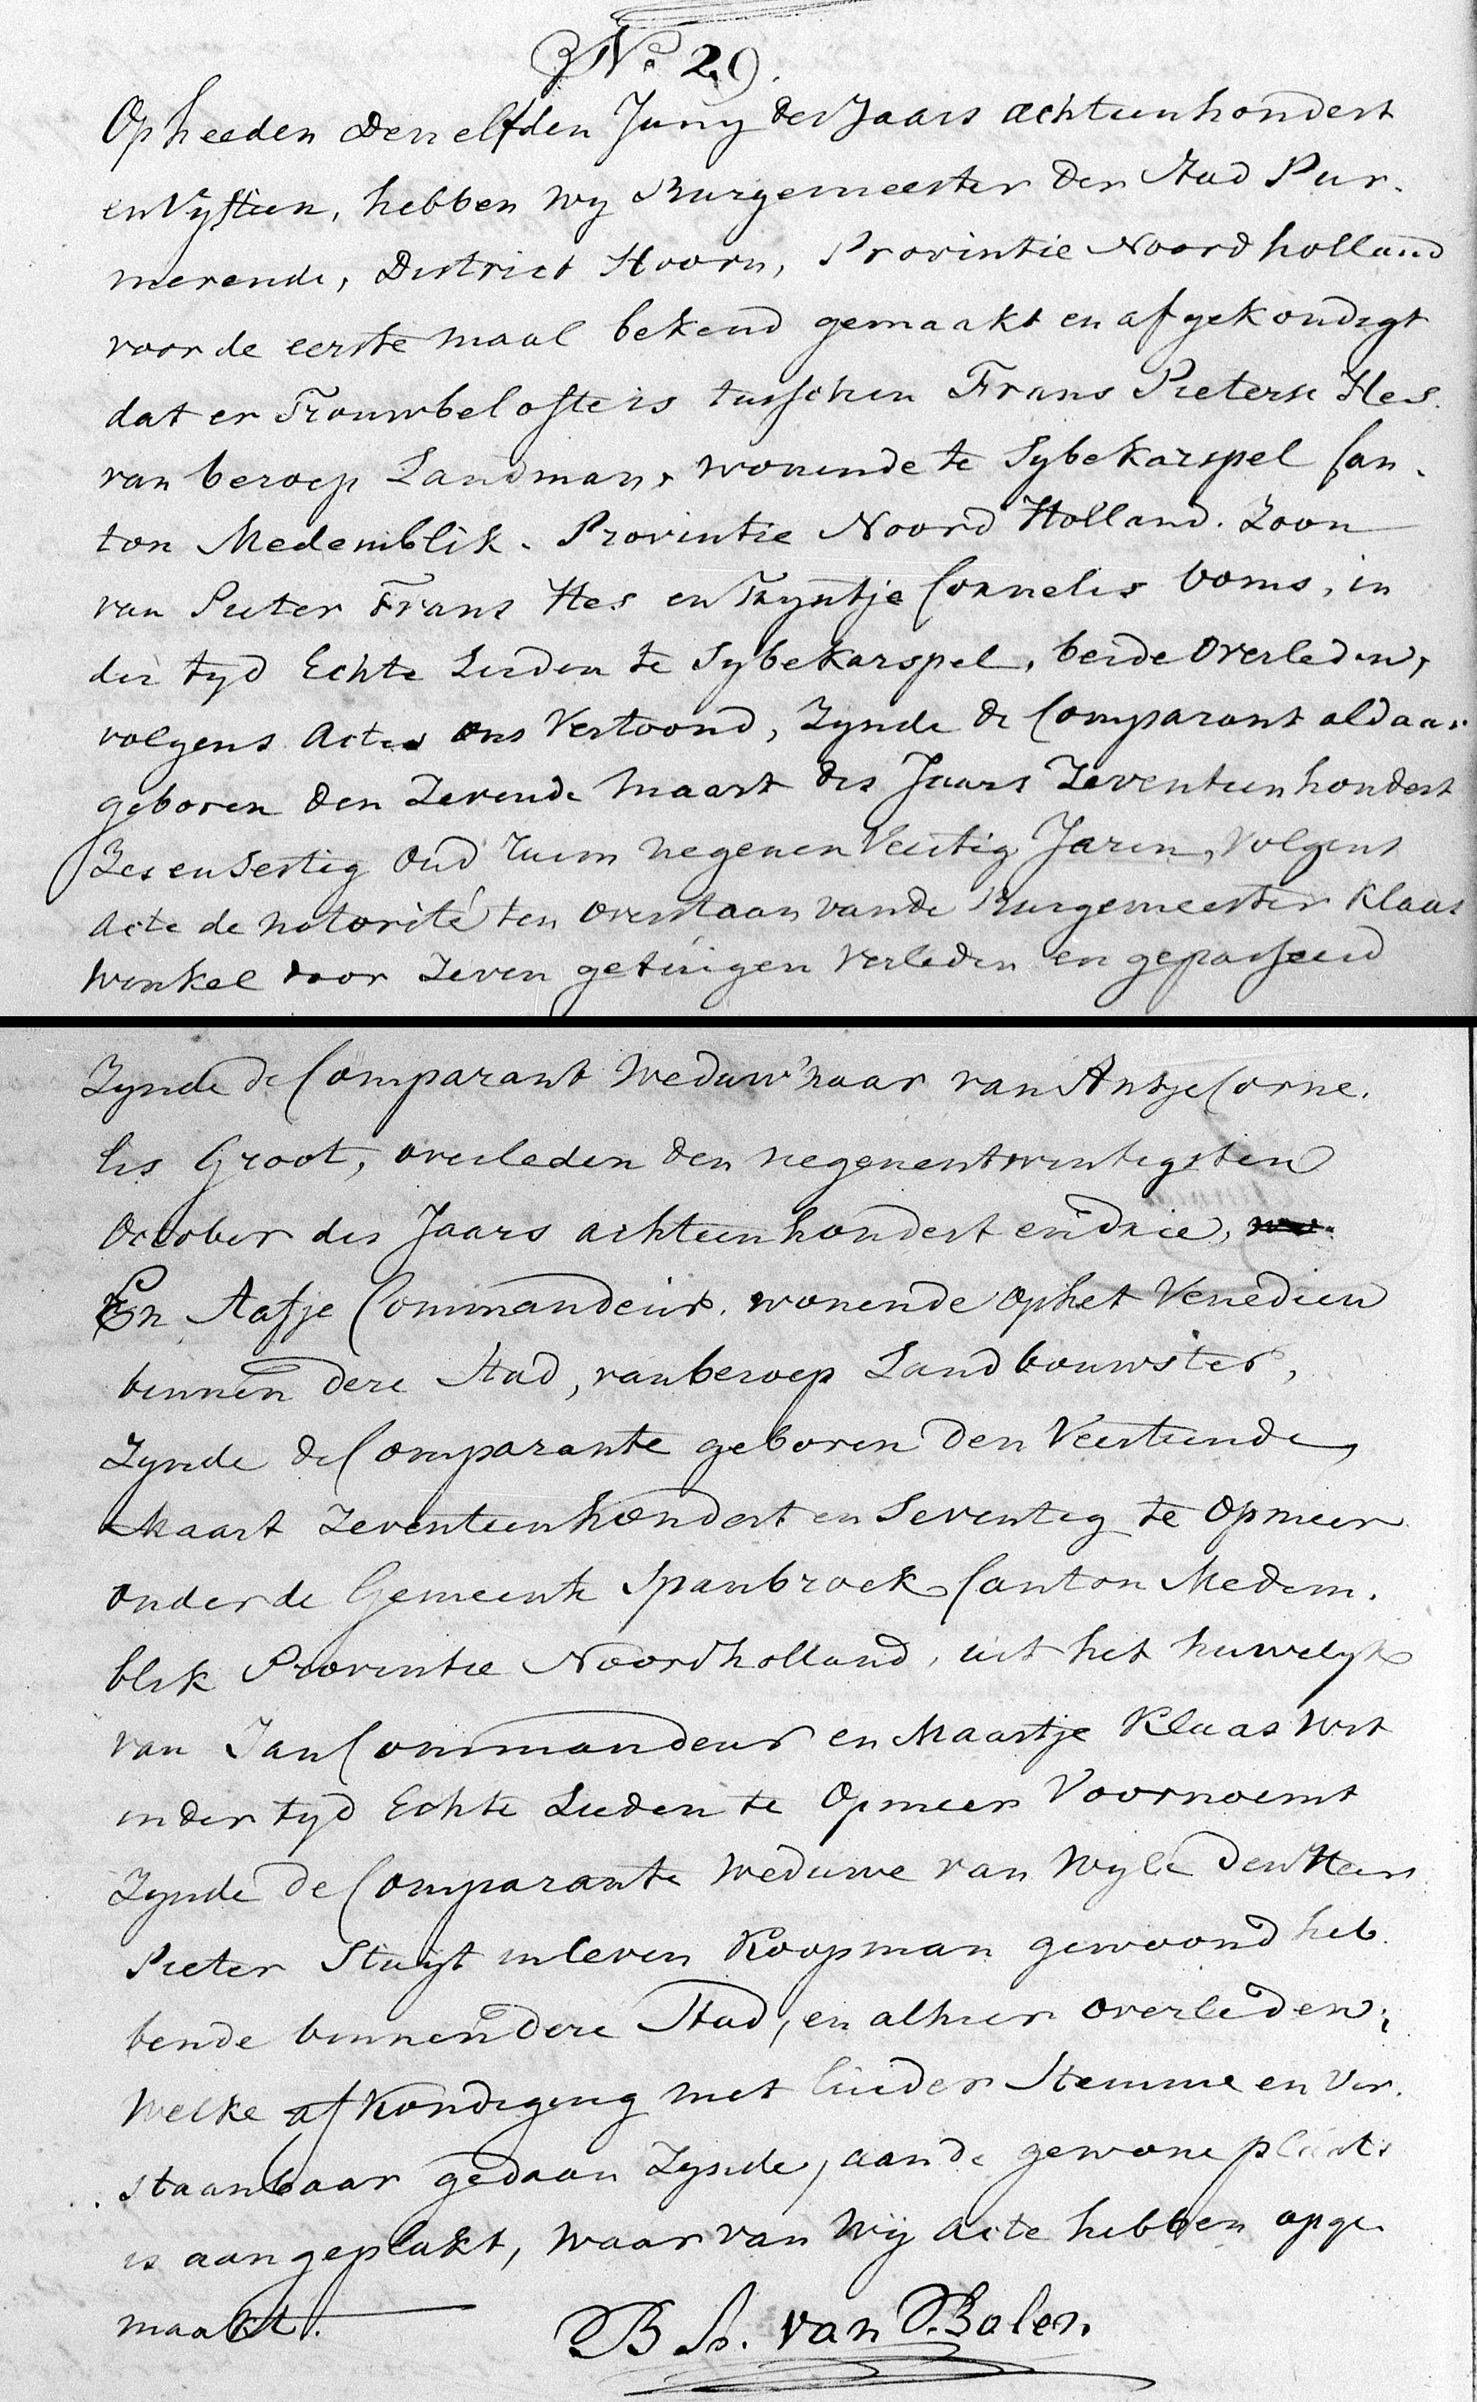 No. 29.
Op heeden den elfden Juny des Jaars achteenhondert
en Vyftien, hebben wy Burgemeester der Stad Pur-
merende, District Hoorn, Provintie Noord holland
voor de eerste maal bekend gemaakt en afgekondigt
dat er Trouwbelofte is tusschen Frans Pieterse Hes.
van beroep Landman, wonende te Sybekarspel Can-
ton Medemblik. Provintie Noord Holland. Zoon
van Pieter Frans Hes en Tryntje Cornelis Boms, in
der tyd Echte Lieden te Sybekarspel, beide overleden,
volgens Actes ons Vertoond, Zynde de Comparant aldaar
geboren den Zevende Maart des Jaars Zeventeenhondert
Zes en Sestig oud ruim negen en Veertig Jaren, volgens
Acte de notorité ten overstaan van de Burgemeester Klaas
Winkel voor Zeven getuigen Verleden en gepasseerd
Zynde de Comparant Weduw'naar van Antje Corne-
lis Groot, overleden den negenentwintigsten
October des Jaars achteenhondert en drie,
En Aafje Commandeur. wonende op het Venedien
binnen deze Stad, van beroep Landbouwster,
Zynde de Comparante geboren den Veertiende
Maart Zeventeenhondert en Seventig te Opmeer
onder de Gemeente Spanbroek Canton Medem-
blik Provintie Noordholland, uit het huwelyk
van Jan Commandeur en Maartje Klaas Wit
in der tyd Echte Lieden te Opmeer Voornoemt
Zynde de Comparante Weduwe van Wyle den Heer
Pieter Stuyt in leven Koopman gewoond heb-
bende binnen deze Stad, en alhier overleden;
Welke afkondiging met luider Stemme en Ver-
staanbaar gedaan Zynde, aan de gewone plaats
is aangeplakt, waar van Wij Acte hebben opge-
maakt.
B S. van Balen.